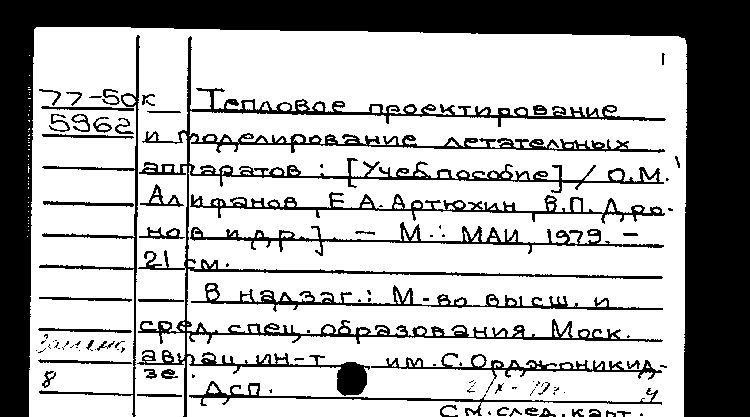 1
77-50к Тепловое проектирование
5962 и моделирование летательных
аппаратов : [Учеб. пособие] / О.М.
Алифанов, Е.А. Артюхин, В.П. Дро-
нов и др.]. - М.: МАИ, 1979. -
21 см.
В надзаг.: М-во высш. и
сред. спец. образования. Моск.
авиац. ин-т им. С. Орджоникид-
зе.
8 Дсп. 2/X-79г. 4
См. след. карт.